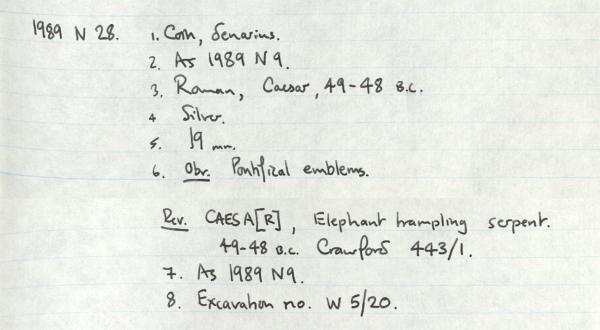 1989 N 28. 1. Coin, denarius.
2. As 1989 N 9.
3. Roman, Caesar, 49-48 B.C.
4 Silver.
5. 19 mm.
6. Obv. Pontifical emblems.
Rev. CAESA[R], Elephant trampling serpent.
49-48 B.C. Crawford 443/1.
7. As 1989 N9.
8. Excavation no. W 5/20.